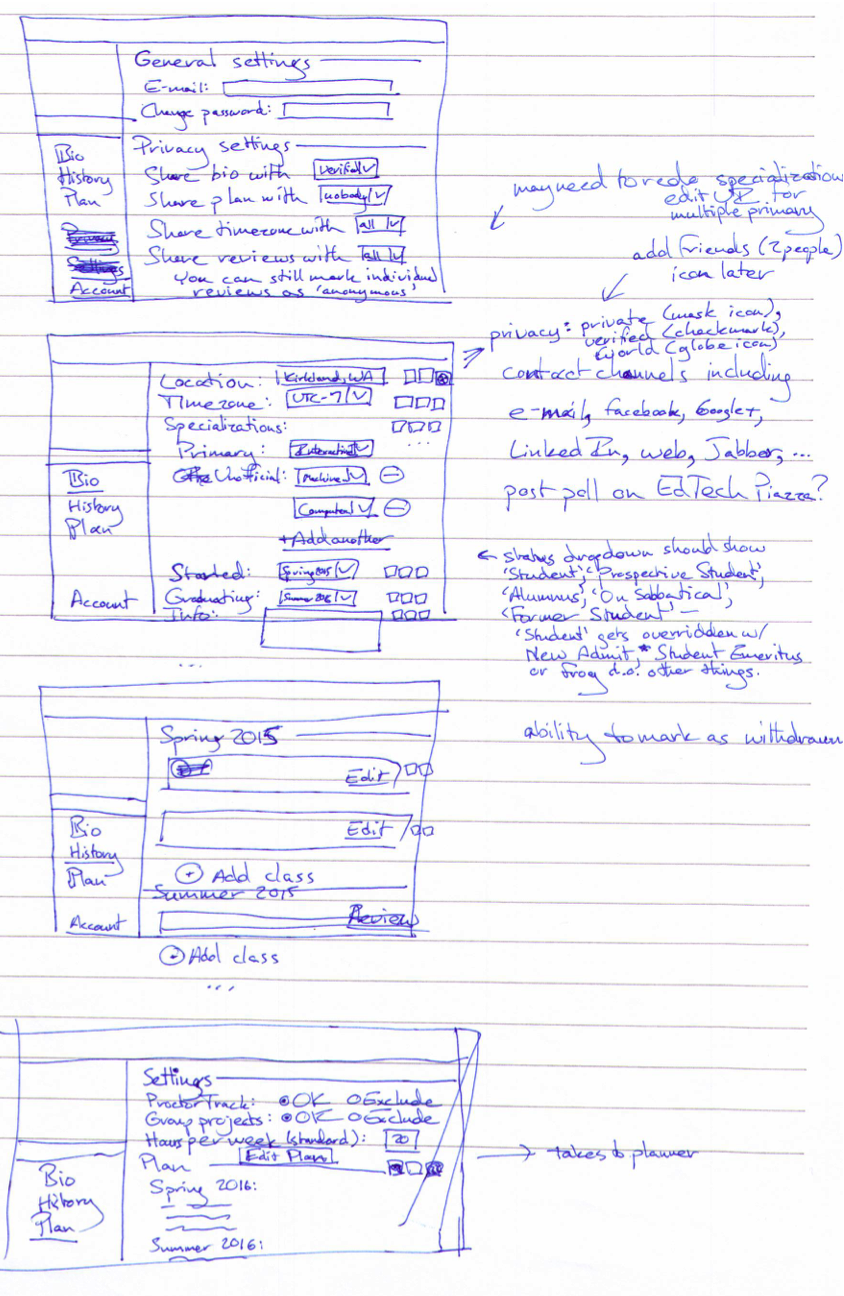 General settings
E-mail:
Change password:
Privacy settings
Share bio with verified
Share plan with nobody
Share timezone with all
Share reviews with all
you can still mark individual
reviews as 'anonymous'
Bio
History
Plan
Privacy
Settings
Account
may need to redo specialization
edit UI for
multiple primary
add friends (2 people)
icon later
privacy: private (mask icon),
verified (checkmark),
world (globe icon)
contact channels including
e-mail, facebook, Google+,
LinkedIn, web, Jabber, ...
post poll on EdTech Piazza?
Location: Kirkland, WA
Timezone: UTC-7
Specializations:
...
Primary: Interactive
Unofficial: Machine
Computeral
+ Add another
Started: Spring 2015
Graduating: Summer 2016
Info:
Bio
History
Plan
Account
...
← status dropdown should show
'Student', 'Prospective Student',
'Alumnus', 'On Sabbatical',
'Former Student' –
'Student' gets overridden w/
New Admit,* Student Emeritus
or from d.o. other things.
Spring 2015
Edit
Edit
+ Add class
Summer 2015
Review
+ Add class
...
Bio
History
Plan
Account
ability to mark as withdrawn
Settings
ProctorTrack: OK Exclude
Group projects: OK Exclude
Hours per week (standard): 20
Plan Edit Plan
→ takes to planner
Spring 2016:
Summer 2016:
Bio
History
Plan